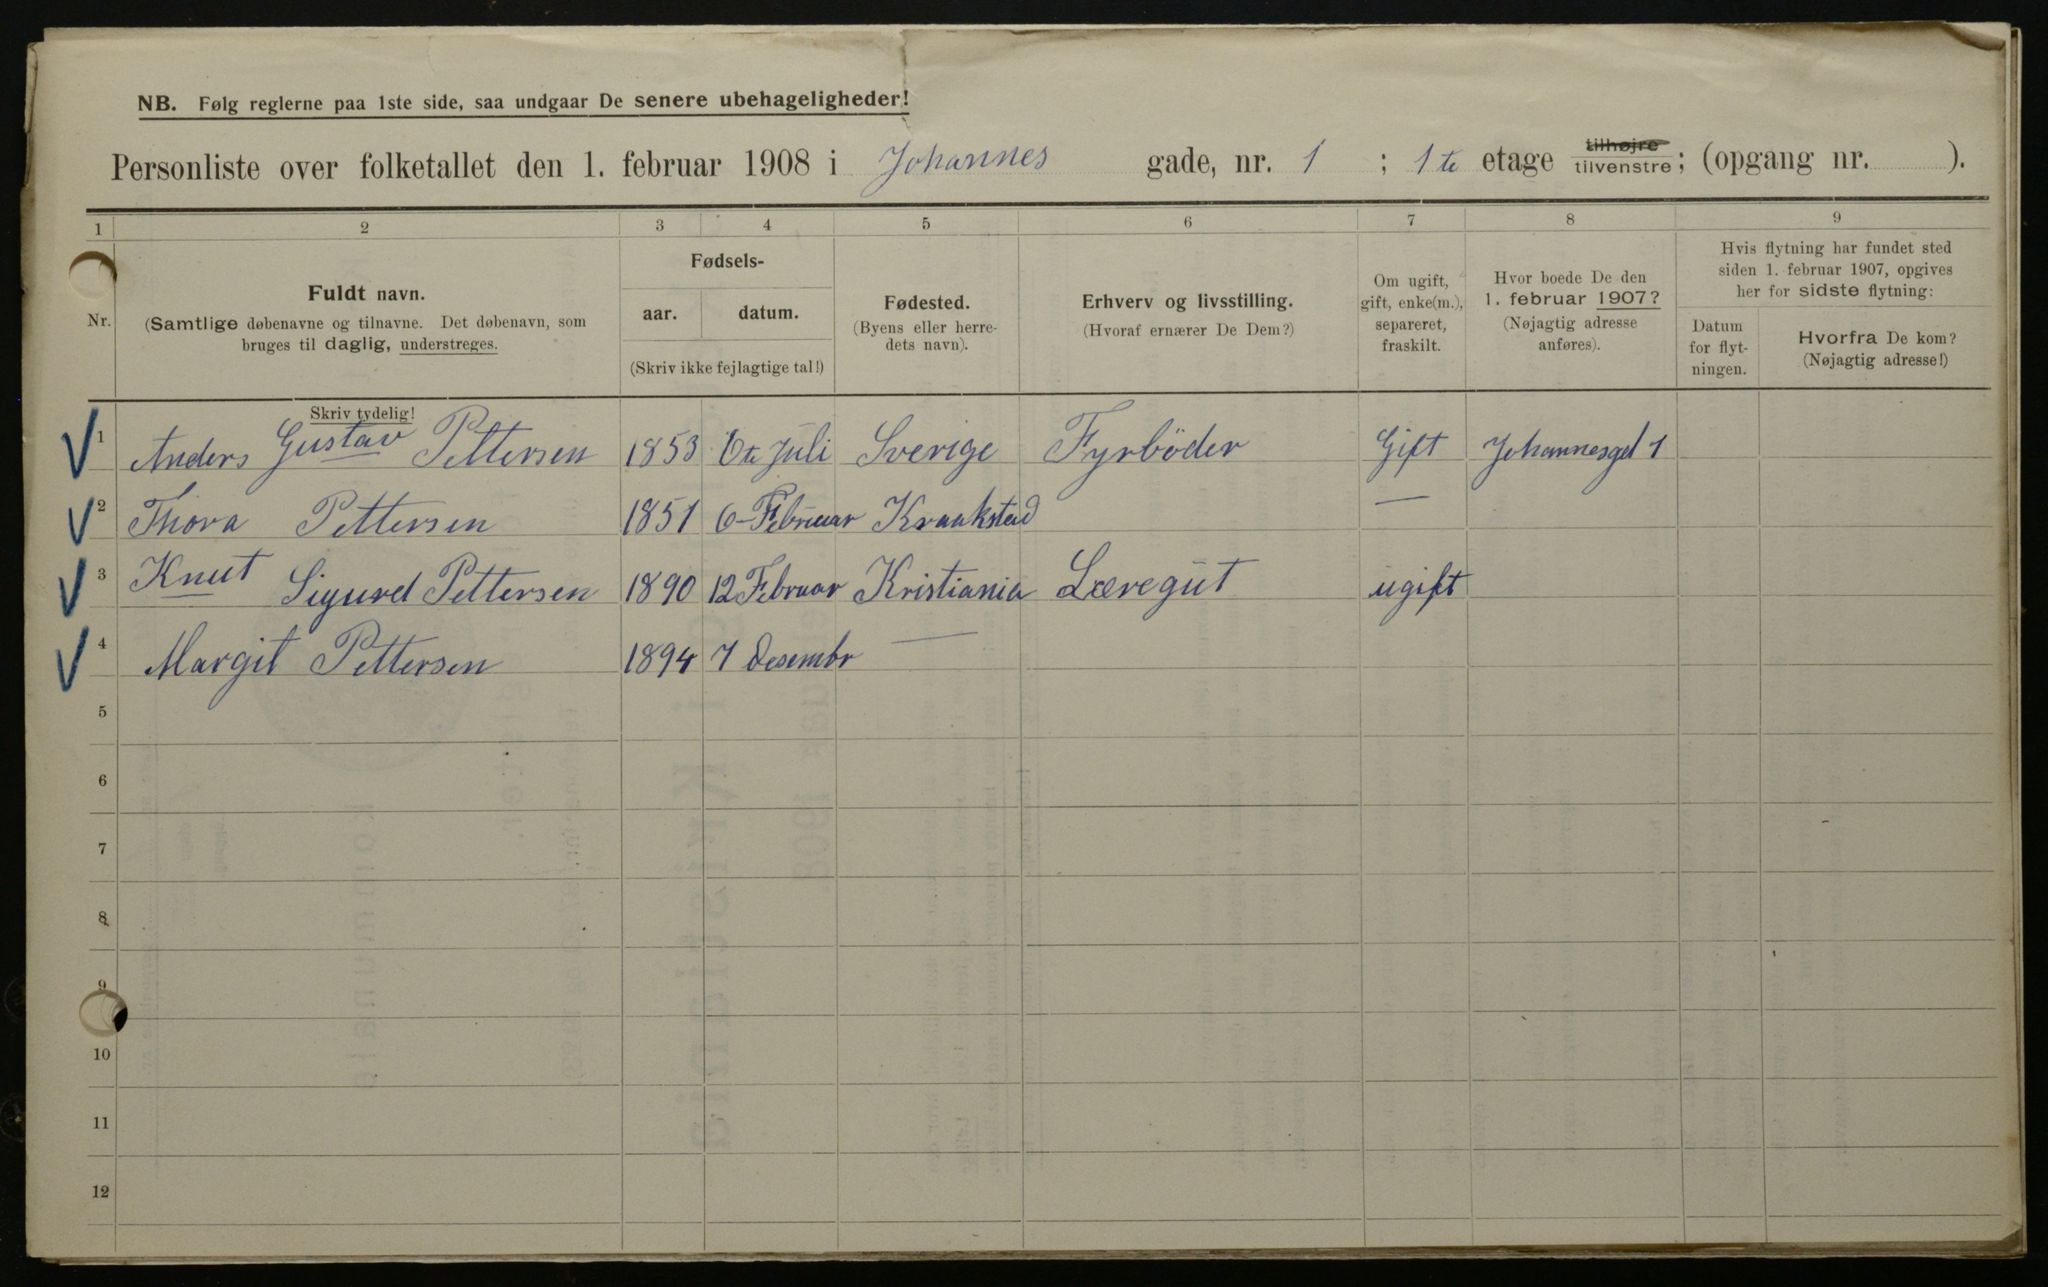 NB. Følg reglerne paa 1ste side, saa undgaar De senere ubehageligheder!
Personliste over folketallet den 1. februar 1908 i Johannes gade, nr. 1 ; 1te etage tilhøjre tilvenstre; (opgang nr. ).
1 2 3 4 5 6 7 8 9
Nr.
Fuldt navn.
(Samtlige døbenavne og tilnavne. Det døbenavn, som
bruges til daglig, understreges.
Fødsels-
aar. datum.
(Skriv ikke fejlagtige tal!)
Fødested.
(Byens eller herre-
dets navn).
Erhverv og livsstilling.
(Hvoraf ernærer De Dem?)
Om ugift,
gift, enke(m.),
separeret,
fraskilt.
Hvor boede De den
1. februar 1907?
(Nøjagtig adresse
anføres).
Hvis flytning har fundet sted
siden 1. februar 1907, opgives
her for sidste flytning:
Datum
for flyt-
ningen.
Hvorfra De kom?
(Nøjagtig adresse!)
Skriv tydelig!
1 Anders Gustav Pettersen 1853 6te Juli Sverige Fyrböder Gift Johannesgd 1
2 Thora Pettersen 1851 6 Februar Kraakstad —
3 Knut Sigurd Pettersen 1890 12 Februar Kristiania Læregut ugift
4 Margit Pettersen 1894 7 Desembr —
5
6
7
8
9
10
11
12